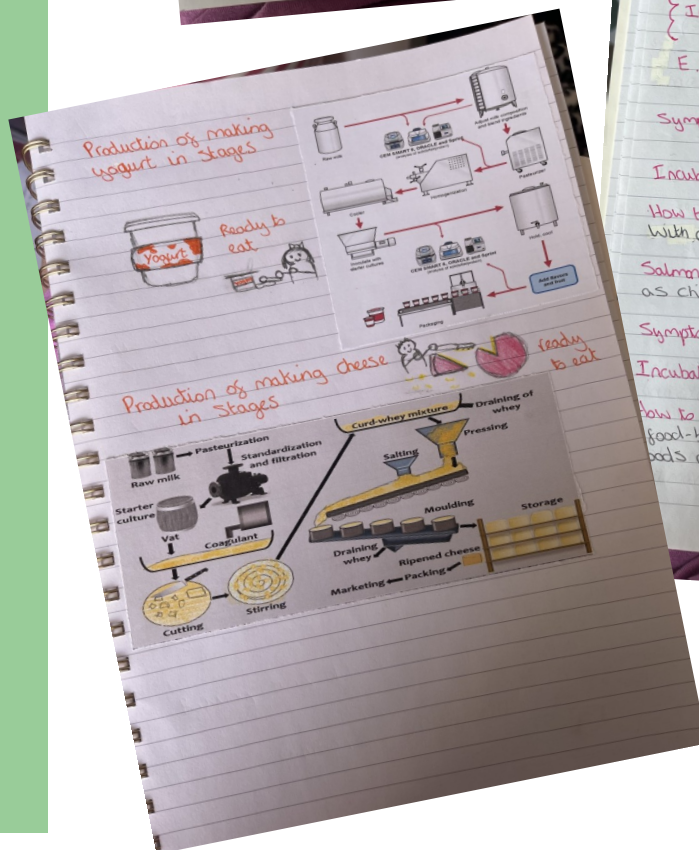 Production of making
yogurt in stages
Yogurt
Ready to
eat
Raw milk
CEM SMART & ORACLE and Sprint
Adjust milk composition
and blend ingredients
Pasteurizer
Homogenization
Cooler
Inoculate with
starter cultures
CEM SMART & ORACLE and Sprint
Hold
Add flavors
and fruit
Packaging
Production of making cheese
in stages
ready
to eat
Raw milk
Pasteurization
Standardization
and filtration
Starter
culture
Vat
Coagulant
Cutting
Stirring
Curd-whey mixture
Draining of
whey
Pressing
Salting
Moulding
Draining
whey
Storage
Ripened cheese
Packing
Marketing
I
E
Symp
Incub
How t
With
Salmon
as chi
Sympt
Incubat
How to
food-